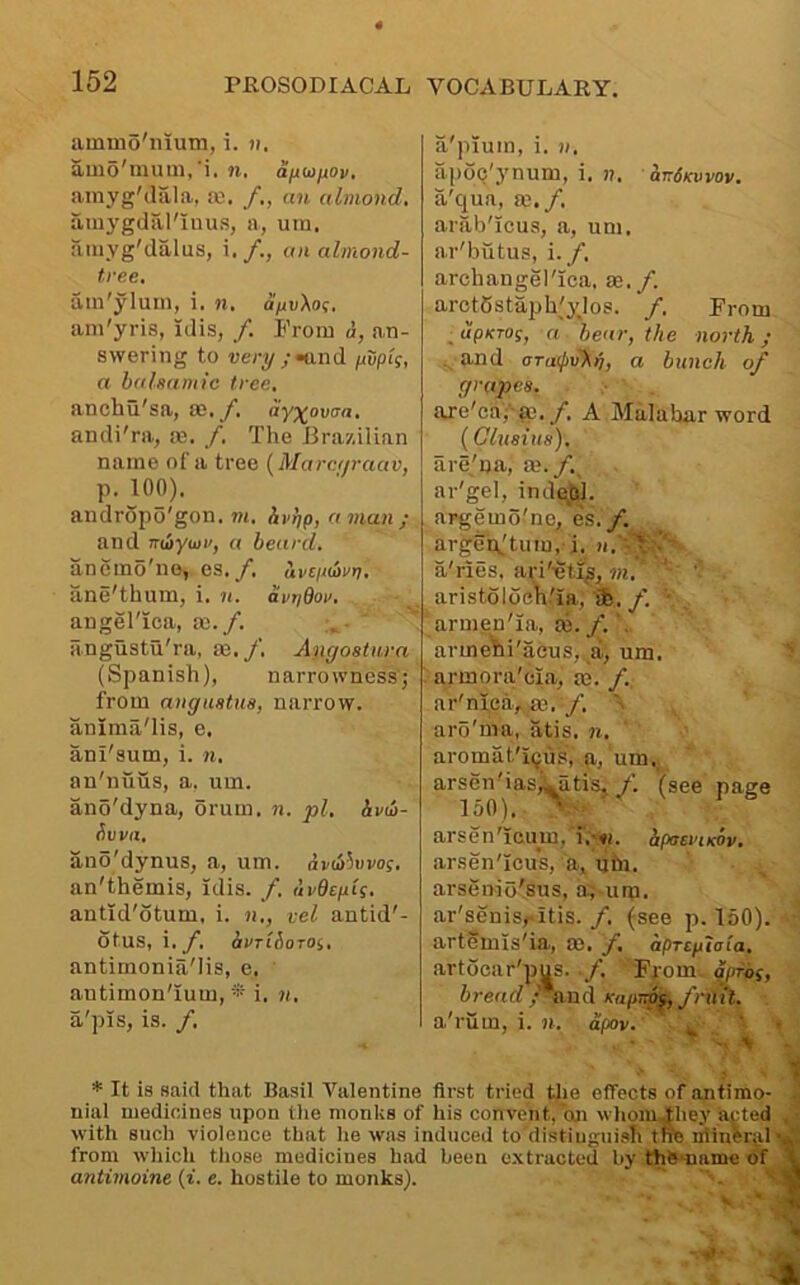 152 PROSODIACAL VOCABULARY.
ammō'nĭum, i. n.
ămō'mum, i. n. ἄμωμον.
amyg'dăla, æ. f., an almond.
ămygdăl'ĭnus, a, um.
ămyg'dălus, i. f., an almond-
tree.
ăm'ȳlum, i. n. ἄμυλος.
am'yris, ĭdis, f. From ἀ, an-
swering to very; and μῦρις,
a balsamic tree.
anchū'sa, æ. f. ἄγχουσα.
andi'ra, æ. f. The Brazilian
name of a tree (Marcgraav,
p. 100).
andrŏpō'gon. m. ἀνὴρ, a man;
and πώγων, a beard.
ănĕmō'ne, es. f. ἀνεμώνη.
ănē'thum, i. n. ἄνηθον.
angĕl'ĭca, æ. f.
ăngŭstū'ra, æ. f. Angostura
(Spanish), narrowness;
from angustus, narrow.
ănĭmā'lis, e.
ănī'sum, i. n.
an'nŭŭs, a, um.
ănō'dyna, ōrum. n. pl. ἀνώ-
δυνα.
ănō'dynus, a, um. ἀνώδυνος.
an'thĕmis, ĭdis. f. ἀνθεμίς.
antĭd'ŏtum, i. n., vel antid'-
ŏtus, i. f. ἀντίδοτος.
antimoniā'lis, e.
antimon'ĭum, * i. n.
ā'pĭs, is. f.
ā'pĭum, i. n.
ăpŏç'ynum, i. n. ἀπόκυνον.
ā'qua, æ. f.
arăb'ĭcus, a, um.
ar'bŭtus, i. f.
archangĕl'ĭca, æ. f.
arctŏstăph'ylos. f. From
ἄρκτος, a bear, the north;
and σταφυλὴ, a bunch of
grapes.
are'ca, æ. f. A Malabar word
(Clusius).
ărē'na, æ. f.
ar'gel, indecl.
argĕmō'ne, es. f.
argĕn'tum, i. n.
ā'rĭĕs, ari'ĕtĭs, m.
aristŏlŏch'ĭa, æ. f.
armen'ĭa, æ. f.
armenĭ'ăcus, a, um.
armora'cĭa, æ. f.
ar'nĭcă, æ. f.
arō'ma, ătis. n.
aromăt'ĭçŭs, a, um.
arsĕn'ias, ātis, f. (see page
150).
arsĕn'ĭcum, i. n. ἀρσενικόν.
arsĕn'ĭcus, a, um.
arsĕniō'sus, a, um.
ar'sĕnis, ītis. f. (see p. 150).
artĕmĭs'ia, æ. f. ἀρτεμῑσία.
artŏcar'pus. f. From ἄρτος,
bread; and καρπὸς, fruit.
a'rum, i. n. ἄρον.
* It is said that Basil Valentine first tried the effects of antimo-
nial medicines upon the monks of his convent, on whom they acted
with such violence that he was induced to distinguish the mineral
from which those medicines had been extracted by the name of
antimoine (i. e. hostile to monks).